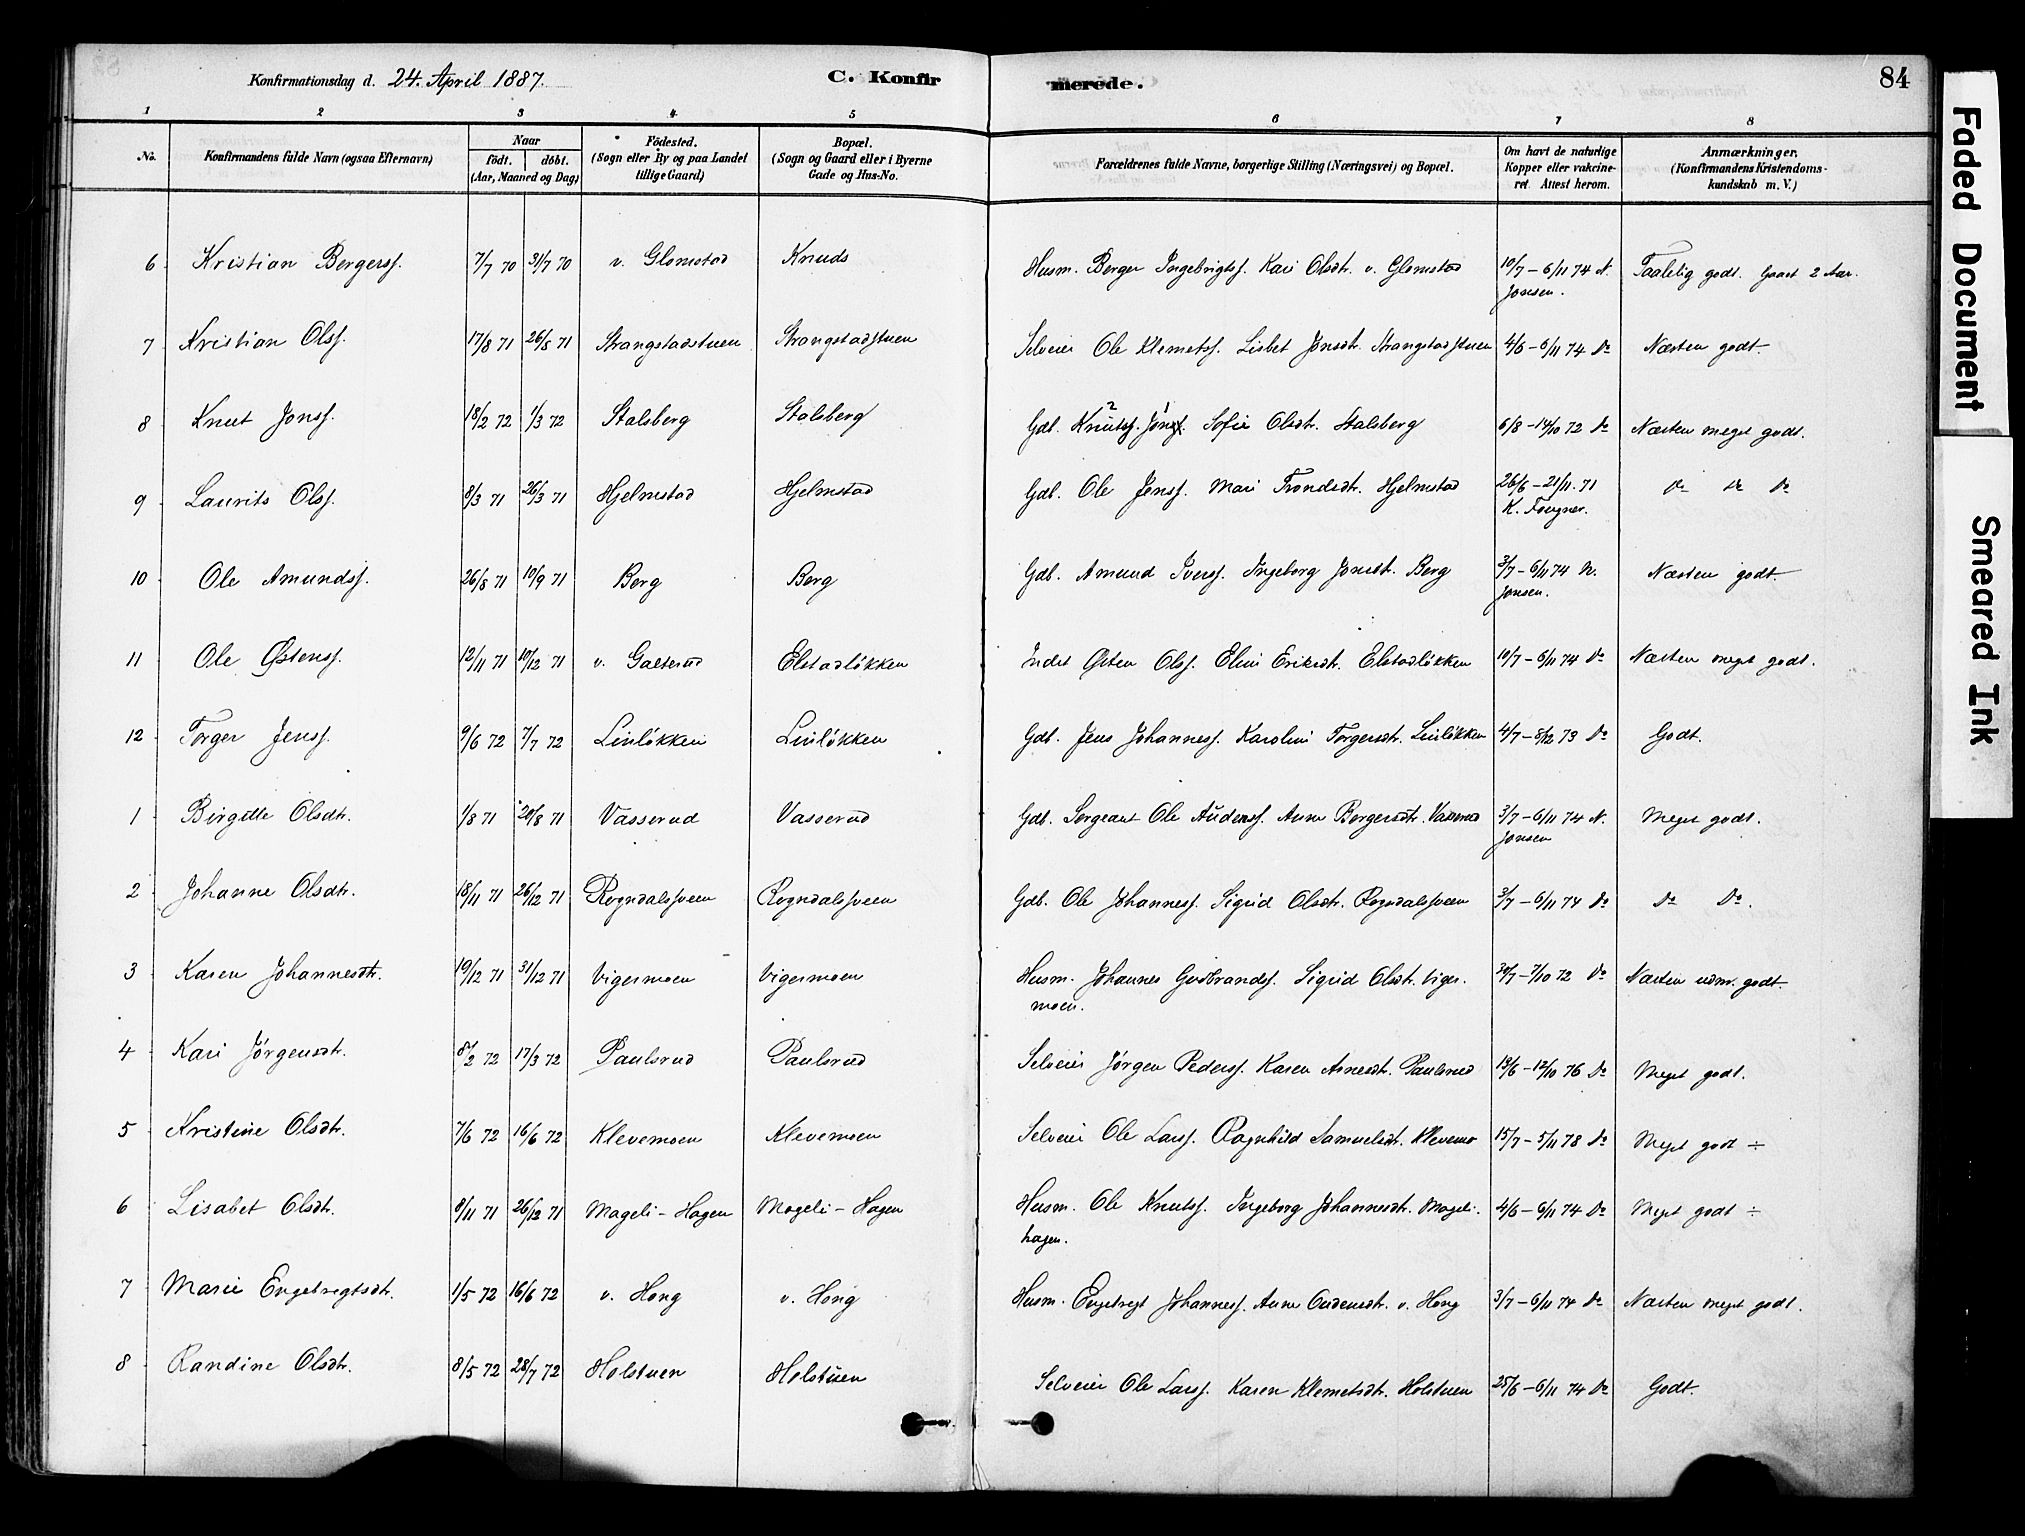 Konfirmationsdag d. 24. April 1887. C. Konfir merede. 84
1 2 3 4 5 6 7 8
No. Konfirmandens fulde Navn (ogsaa Efternavn) Naar födt. döbt. (Aar, Maaned og Dag) Födested. (Sogn eller By og paa Landet tillige Gaard) Bopæl. (Sogn og Gaard eller i Byerne Gade og Hus-No. Forældrenes fulde Navne, borgerlige Stilling (Næringsvei) og Bopæl. Om havt de naturlige Kopper eller vakcineret. Attest herom. Anmærkninger. (Konfirmandens Kristendomskundskab m. V.)
6 Kristian Bergerss. 7/7 70 31/7 70 v. Glomstad Knuds Husm. Berger Ingebrigtss. Kari Olsdt. v. Glomstad 10/7 - 6/11 74 N. Taalelig godt. Gaaet 2 Aar.
Jonsen.
7 Kristian Olss. 17/8 71 26/5 71 Strangstadstuen Strangstadstuen Selveier Ole Klemetss. Lisbet Jonsdt. Strangstadstuen 4/6 - 6/11 74 Do Næsten godt.
8 Knut Jonss. 18/2 72 1/3 72 Stalsberg Stalsberg Gdb. Knutss. 2 Jons 1 Sofie Olsdt. Stalsberg 6/8 - 14/10 72 Do Næsten meget godt.
9 Laurits Olss. 8/3 71 26/3 71 Hjelmstad Hjelmstad Gdb. Ole Jenss. Mari Trondsdt. Hjelmstad 26/6 - 21/11. 71 Do Do Do
K. Fougner.
10 Ole Amundss. 26/8 71 10/9 71 Berg Berg Gdb. Amund Iverss. Ingeborg Jonsdt. Berg 3/7 - 6/11 74 N. Næsten godt.
Jonsen.
11 Ole Østenss. 12/11 71 10/12 71 v. Galterud Elstadløkken Indst Østen Olss. Eline Eriksdt. Elstadløkken 10/7 - 6/11 74 Do Næsten meget godt.
12 Torger Jenss. 9/6 72 7/7 72 Linløkken Linløkken Gdb. Jens Johanness. Karoline Torgersdt. Linløkken 4/7 - 8/12 73 Do Godt.
1 Birgitte Olsdtr. 1/8 71 20/8 71 Vasserud Vasserud Gdb. Sergeant Ole Audenss. Anne Bergersdtr. Vasserud 3/7 - 6/11 74 N. Meget godt.
Jonsen
2 Johanne Olsdtr. 18/11 71 26/12 71 Rogndalsveen Rogndalsveen Gdb. Ole Johanness. Sigrid Olsdt. Rogndalsveen 3/7 - 6/11 74 Do Do Do.
3 Karen Johannesdtr. 19/12 71 31/12 71 Vigermoen Vigermoen Husm. Johannes Gudbrandss. Sigrid Olsdt. Viger- 30/7 - 7/10 72 Do Næsten udm. godt.
moen.
4 Kari Jørgensdtr. 8/2 72 17/3 72 Paulsrud Paulsrud Selveier Jørgen Pederss. Karen Arnesdt. Paulsrud 19/6 - 12/10 76 Do Meget godt.
5 Kristine Olsdtr. 7/6 72 16/6 72 Klevemoen Klevemoen Selveier Ole Larss. Ragnhild Samuelsdt. Klevemo 15/7 - 5/11 78 Do Meget godt ÷
6 Lisabet Olsdtr. 8/11 71 26/12 71 Mageli-Hagen Mageli-Hagen Husm. Ole Knutss. Ingeborg Johannesdt. Mageli- 4/6 - 9/11 74 Do Meget godt ÷
hagen.
7 Marie Engebregtsdtr. 1/5 72 16/6 72 v. Hong v. Hong Husm. Engebregt Johanness. Anne Oudensdt. v. Hong 3/7 - 6/11 74 Do Næsten meget godt.
8 Randine Olsdtr. 8/5 72 28/7 72 Holstuen Holstuen Selveier Ole Larss. Karen Klemetsdtr. Holstuen 25/6 - 6/11 74 Do Godt.
Faded Document
Smeared Ink